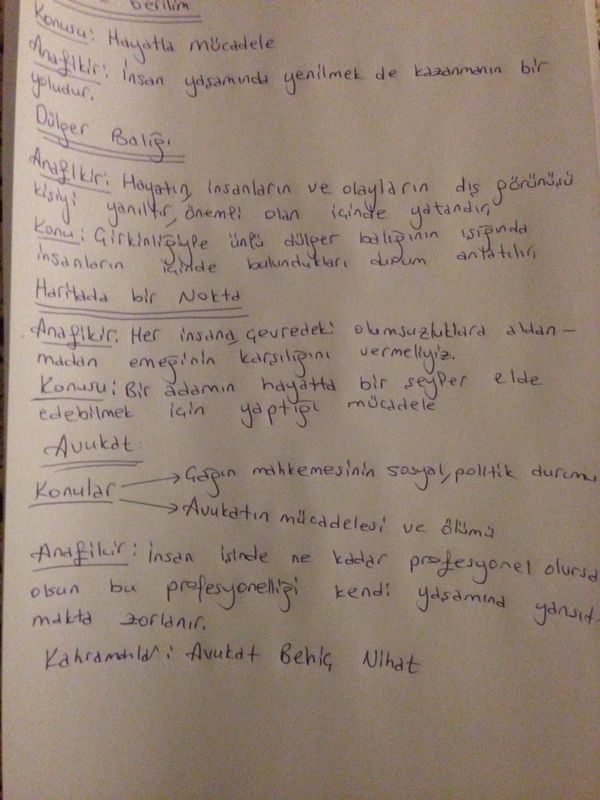 Gerilim
Konusu: Hayatla mücadele
Anafikir: İnsan yaşamında yenilmek de kazanmanın bir
yoludur.
Dülger Balığı
Anafikir: Hayatın, insanların ve olayların dış görünüşü
kişiyi yanıltır, önemli olan içinde yatandır.
Konu: Çirkinliğiyle ünlü dülger balığının ışığında
insanların içinde bulundukları durum anlatılır.
Haritada bir Nokta
Anafikir: Her insana, çevredeki olumsuzluklara aldan-
madan emeğinin karşılığını vermeliyiz.
Konusu: Bir adamın hayatta bir şeyler elde
edebilmek için yaptığı mücadele
Avukat:
Konular → Çağın mahkemesinin sosyal, politik durumu
→ Avukatın mücadelesi ve ölümü
Anafikir: İnsan işinde ne kadar profesyonel olursa
olsun bu profesyonelliği kendi yaşamına yansıt-
makta zorlanır.
Kahramanlar: Avukat Behiç Nihat